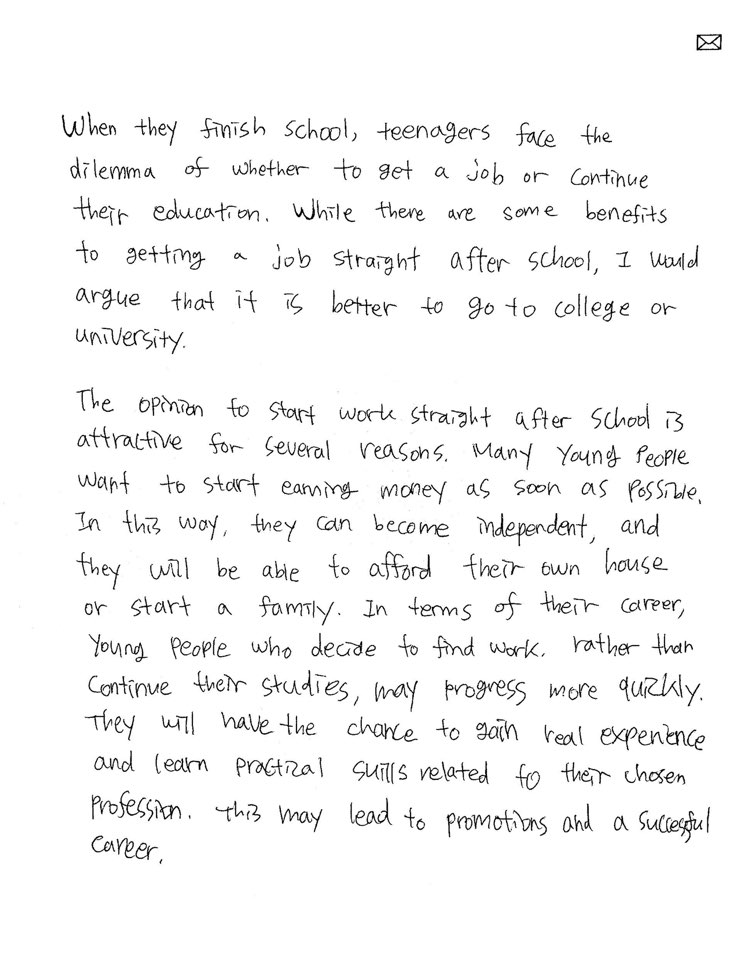 When they finish school, teenagers face the
dilemma of whether to get a job or continue
their education. While there are some benefits
to getting a job straight after school, I would
argue that it is better to go to college or
university.
The opinion to start work straight after school is
attractive for several reasons. Many Young People
want to start earning money as soon as possible.
In this way, they can become independent, and
they will be able to afford their own house
or start a family. In terms of their career,
Young People who decide to find work. rather than
continue their studies, may progress more quickly.
They will have the chance to gain real experience
and learn practical skills related to their chosen
profession. this may lead to promotions and a successful
career.